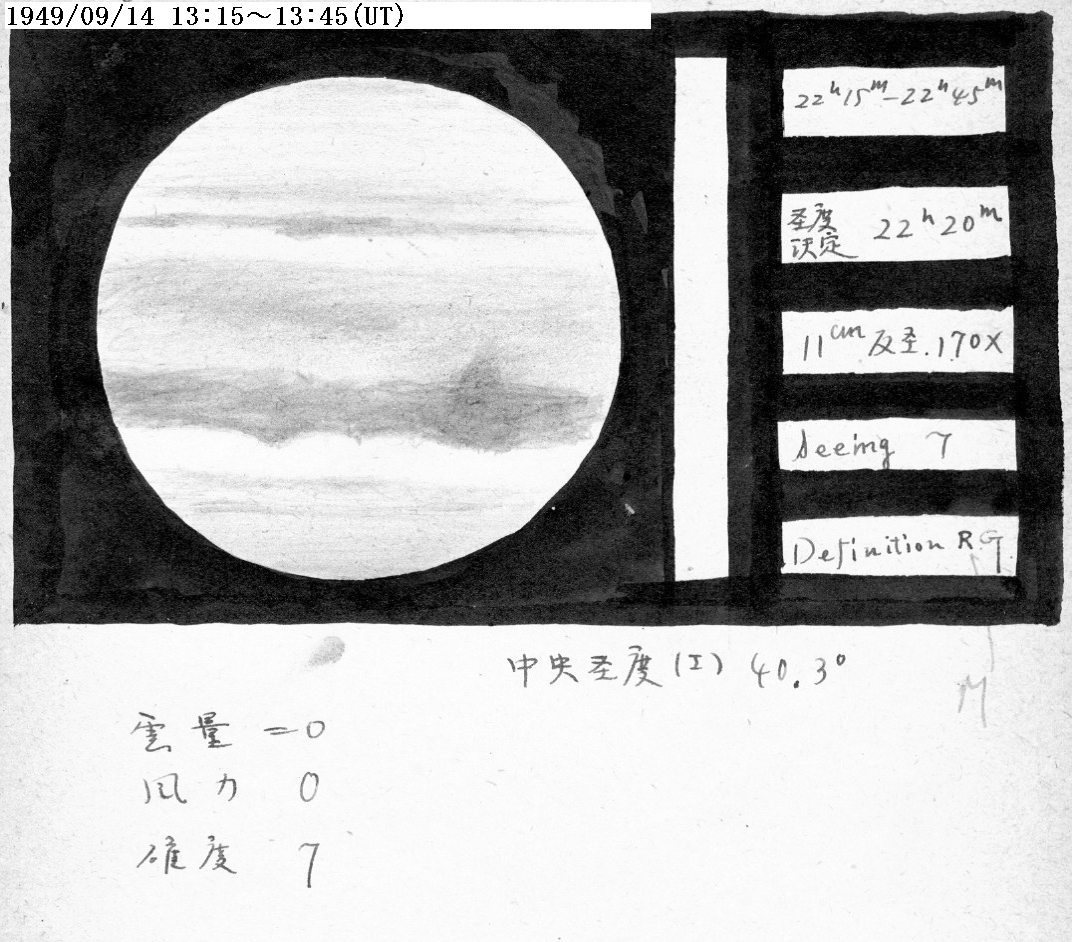 1949/09/14 13:15～13:45(UT)
22h15m-22h45m
圣度
決定 22h20m
11cm 反圣.170X
Seeing 7
Definition R.G
M
中央圣度(I) 40.3°
雲量 =0
風力 0
確度 7